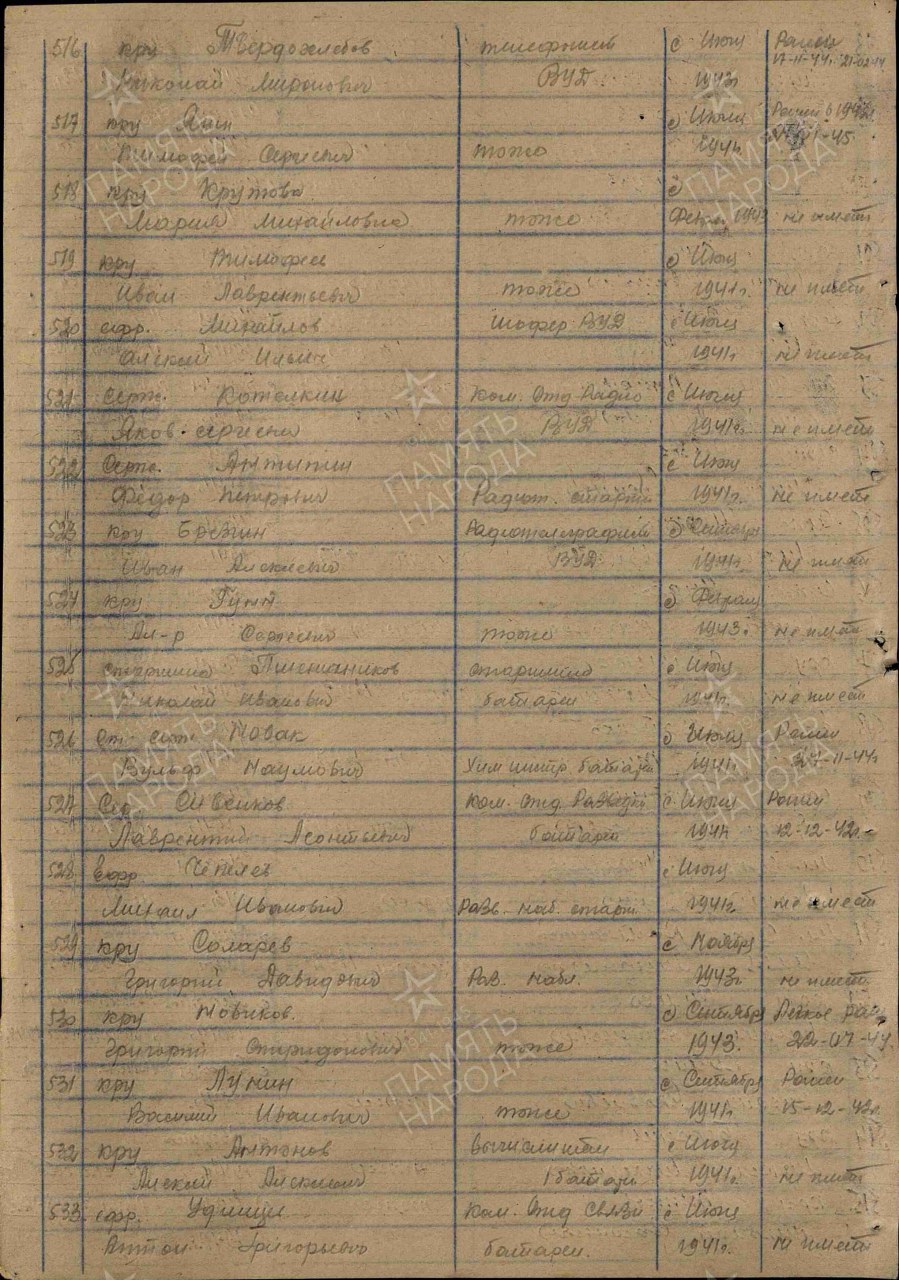 516 кру Твердохлебов телефонист с Июня Ранен
Николай Миронович ВУД 1943г. 17-11-44г. 21-02-44
517 кру Яшин с Июля Ранен в 1942г.
Тимофей Сергеевич тоже 1941г.
518 кру Крутова с
Мария Михайловна тоже 1943 не имеет
519 кру Тимофеев с Июля
Иван Лаврентьевич тоже 1941г. не имеет
520 ефр. Михайлов шофер ВУД с Июня
Алексей Ильич 1941г. не имеет
521 серж. Котелкин Ком. Отд Радио с Июня
Яков Сергеевич ВУД 1941г. не имеет
522 Серж. Антипин с Июня
Федор Петрович Радиот. старший 1941г. не имеет
523 кру Брезгин Радиотелеграфист с Сентября
Иван Алексеевич ВУД 1941г. не имеет
524 кру с Февраля
Ал-р Сергеевич тоже 1943г. не имеет
525 старшина Пшеничников старшина с Июня
Николай Иванович батареи 1941г. не имеет
526 Ст. серж. Новак с Июля Ранен
Вульф Наумович Хим инстр. батареи 1941г. -11-44г.
527 Сивенков Ком. Отд Разведки с Ранен
Лаврентий Леонтьевич батареи 1941г. 12-12-42г.
528 Ефр. Чепелев с Июня
Михаил Иванович Разв. наб. старш 1941г. не имеет
529 кру Соларев с Ноября
Григорий Давидович Раз. набл. 1943г. не имеет
530 кру Новиков. с Сентября Легкое ран.
Григорий Спиридонович тоже 1943. 22-07-44г.
531 кру Лунин с Сентября Ранен
Василий Иванович тоже 1941г. 15-12-42г.
532 кру Антонов вычислитель с Июня
Алексей Алексеевич батареи 1941г. не имеет
533. ефр. Ком. Отд Связи с Июня
Антон Григорьевич батареи. 1941г. не имеет
ПАМЯТЬ НАРОДА